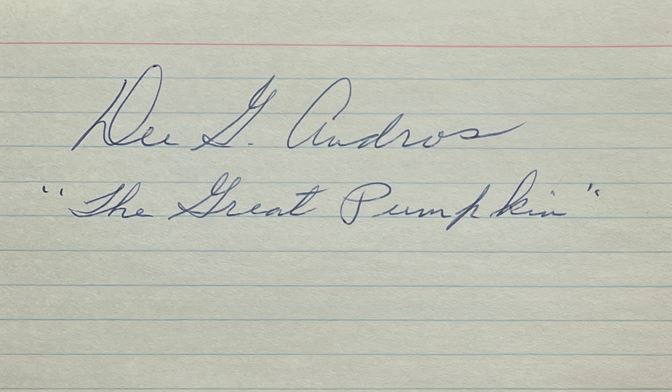 Dee G. Andros
"The Great Pumpkin"